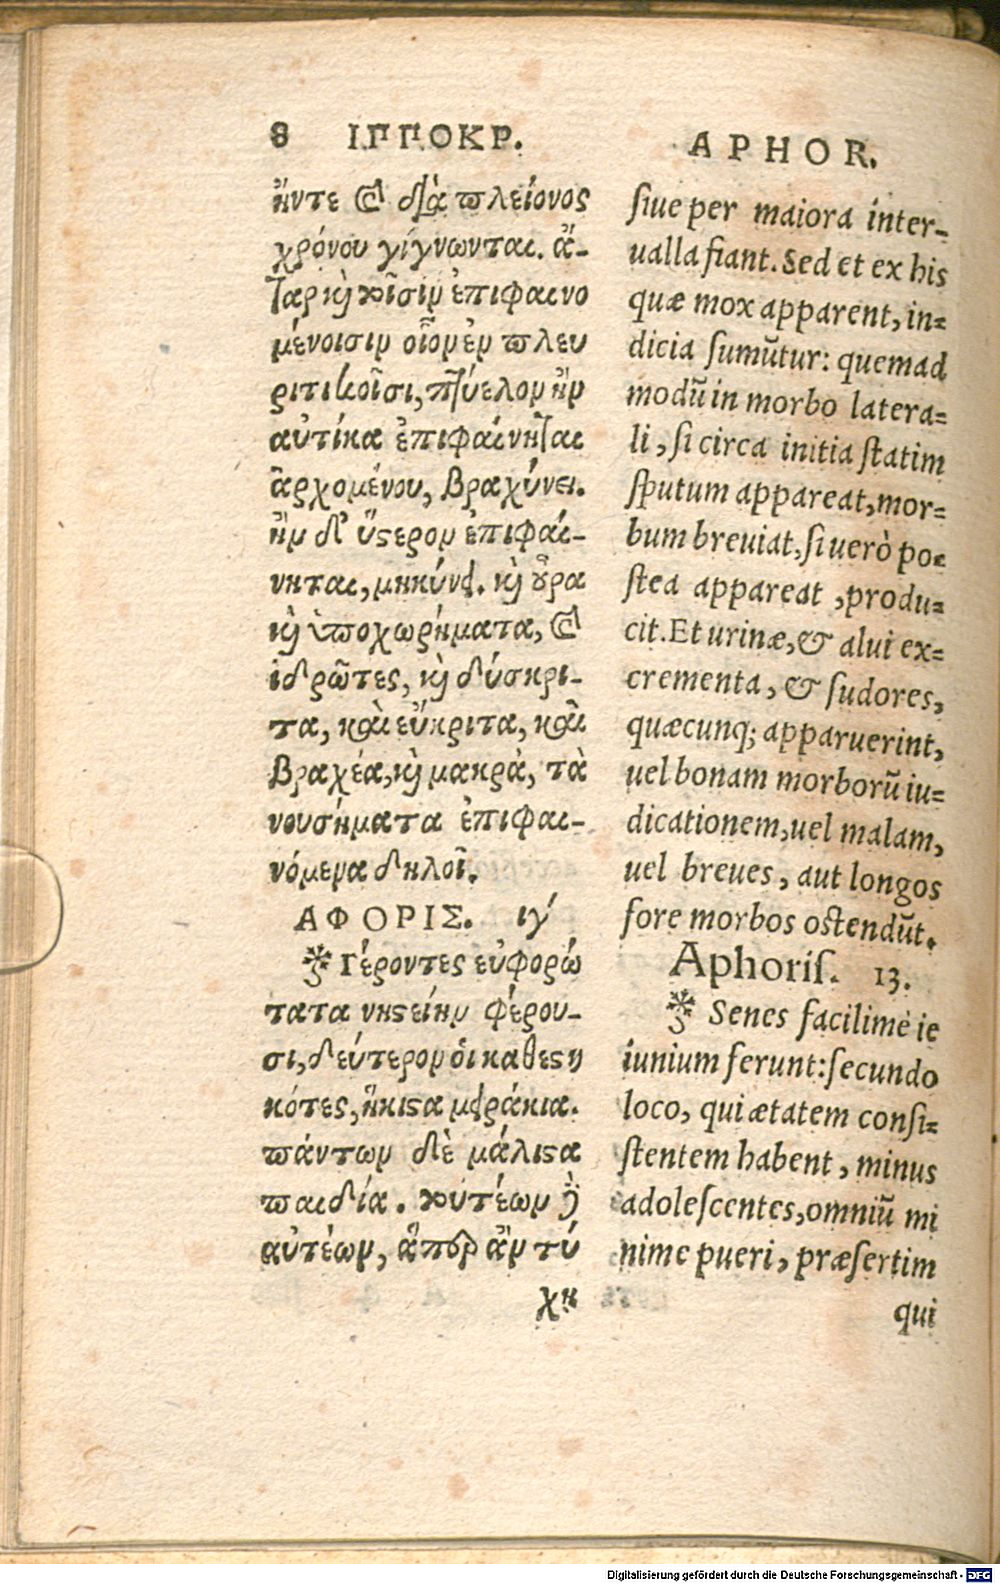 8 ΙΠΠΟΚΡ.
ἤντε καὶ διὰ πλείονος
χρόνου γίγνωνται. ἀ-
τὰρ καὶ τοῖσιν ἐπιφαινο
μένοισιν οἷον ἐν πλευ
ριτικοῖσι, πτύελον ἢν
αὐτίκα ἐπιφαίνηται
ἀρχομένου, βραχύνει.
ἢν δ' ὕστερον ἐπιφαί-
νηται, μηκύνει. καὶ οὖρα
καὶ ὑποχωρήματα, καὶ
ἱδρῶτες, καὶ δύσκρι-
τα, καὶ εὔκριτα, καὶ
βραχέα, καὶ μακρὰ, τὰ
νουσήματα ἐπιφαι-
νόμενα δηλοῖ.
ΑΦΟΡΙΣ. ιγ'
Γέροντες εὐφορώ
τατα νηστείην φέρου-
σι, δεύτερον οἱ καθεστη
κότες, ἥκιστα μειράκια.
πάντων δὲ μάλιστα
παιδία. τουτέων δὲ
αὐτέων, ἅπερ ἂν τύ
χη
APHOR.
siue per maiora inter-
ualla fiant. Sed et ex his
quæ mox apparent, in-
dicia sumũtur: quemad
modũ in morbo latera-
li, si circa initia statim
sputum appareat, mor-
bum breuiat, si uerò po-
stea appareat, produ-
cit. Et urinæ, & alui ex-
crementa, & sudores,
quæcunq; apparuerint,
uel bonam morborũ iu-
dicationem, uel malam,
uel breues, aut longos
fore morbos ostendũt.
Aphoris. 13.
Senes facilimè ie
iunium ferunt: secundo
loco, qui ætatem consi-
stentem habent, minus
adolescentes, omniũ mi
nime pueri, præsertim
qui
Digitalisierung gefördert durch die Deutsche Forschungsgemeinschaft - DFG